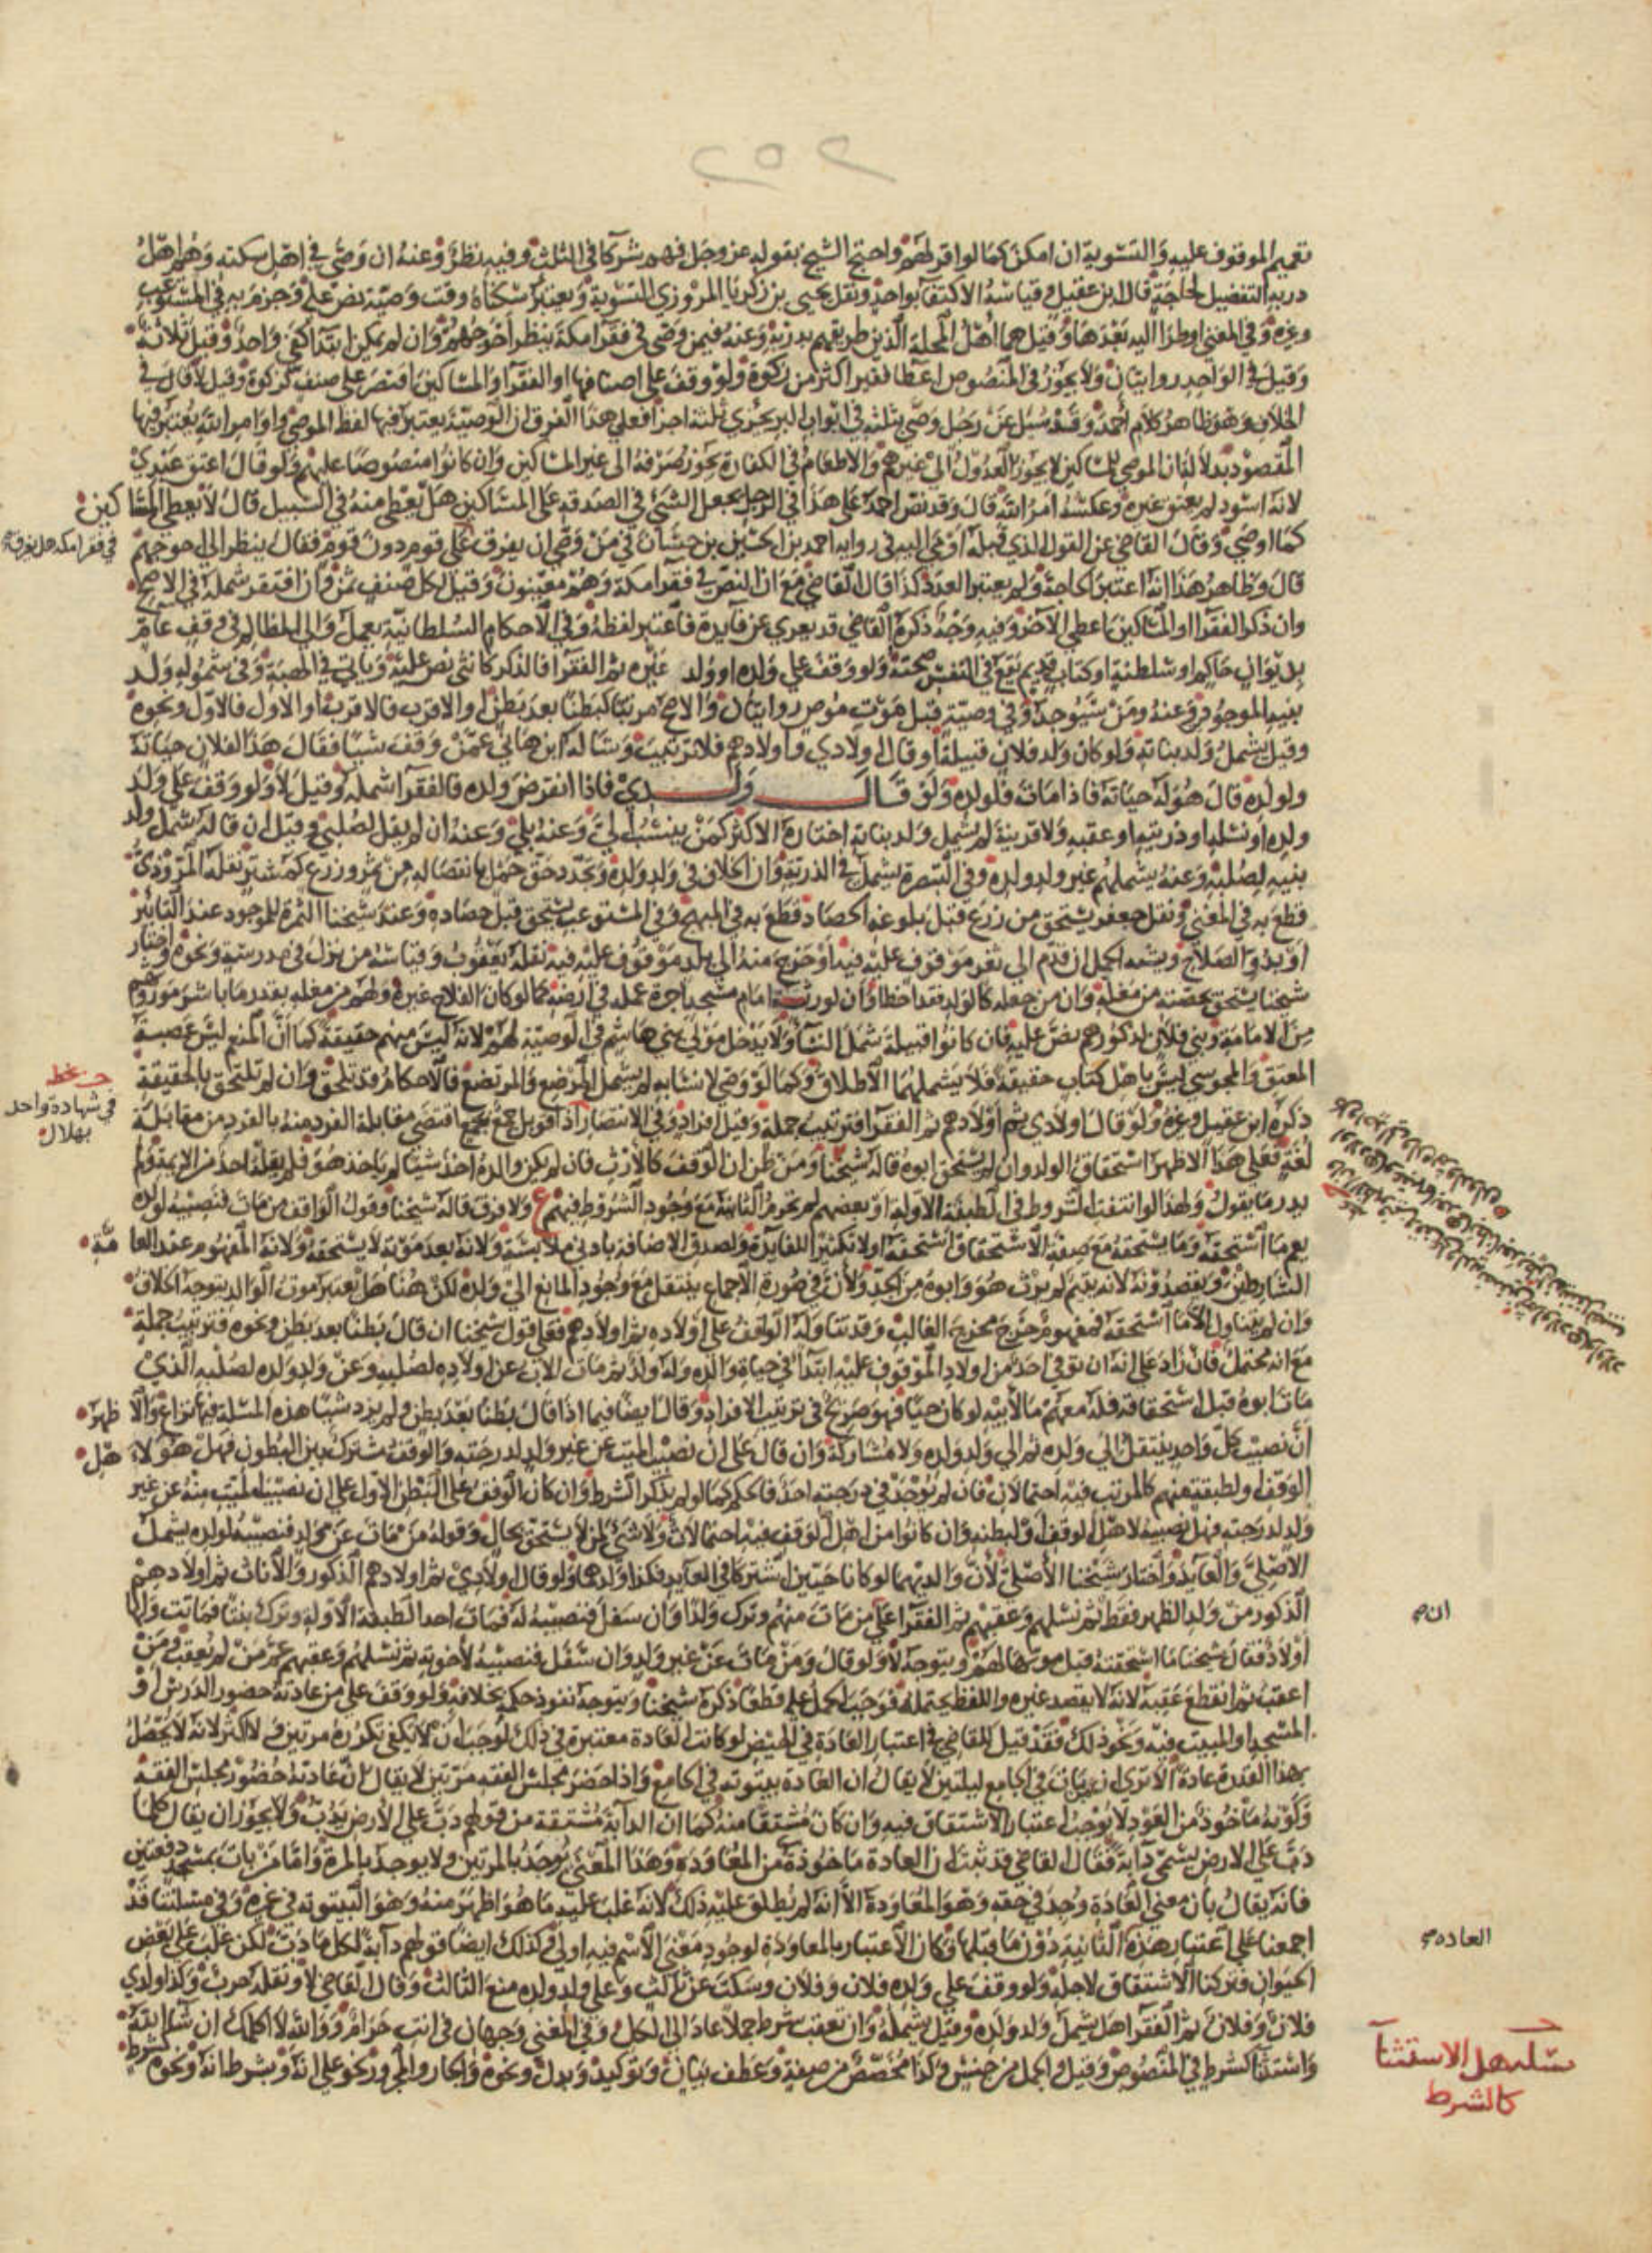 ٢٥٢
تعميم الموقوف عليه والتسوية ان امكن كما لو اقر لهم واحتج الشيخ بقوله عز وجل فهم شركا في الثلث وفيه نظر وعنه ان وصى في اهل سكته وهم اهل
دربه التفضيل لحاجة قال ابن عقيل وقياسه الاكتفا بواحد ونقل يحيى بن زكريا المروزي التسوية ويعتبر سكناه وقت وصيته نص عليه وجزم به في المستوعب
وغيره وفي المغني او طرا اليه بعدها وقيل هما اهل المحلة الذين طريقهم بدربه وعنه فيمن وصى في فقرا مكة ينظر احوجهم وان لم يكن ابتدا كفى واحد وقيل ثلاثة
وقيل في الواحد روايتان ولا يجوز في المنصوص اعطا فقير اكثر من زكوة ولو وقف على اصنافها او الفقرا والمساكين اقتصر على صنف كزكوة وقيل لا قال في
الخلاف وهو ظاهر كلام احمد وقد سئل عن رجل وصى بثلثه في ابواب البر يجزى ثلثة اجزا فعلى هذا الفرق ان الوصية يعتبر فيها لفظ الموصي واوامر الله يعتبر فيها
المقصود بدلالة ان الموصي للمساكين لا يجوز العدول الى غيرهم والاطعام في الكفارة يجوز صرفه الى غير المساكين وان كانوا منصوصا عليهم ولو قال اعتق عبدي
لانه اسود لم يعتق غيره وعكسه امر الله قال وقد نص احمد على هذا في الرجل يجعل الشي في الصدقة على المساكين هل يعطى منه في السبيل قال لا يعطى المساكين
كما اوصى وقال القاضي عن القول الذي قبله اومى اليه في رواية احمد بن الحسين بن حسان في من وصى ان يفرق على قوم دون قوم فقال ينظر الى احوجهم
في فقرا مكه هل يفرق
قال وظاهر هذا انه اعتبر الحاجة ولم يعتبر العدد كذا قال القاضي مع ان النص في فقرا مكة وهم معينون وقيل لكل صنف ثمن وان افتقر شمله في الاصح
وان ذكر الفقرا او المساكين اعطي الاخر وفيه وجه ذكره القاضي قد يعرى عن فايدة فاعتبر لفظه وفي الاحكام السلطانية يعمل والي المظالم في وقف عام
بديوان حاكم او سلطنة او كتاب قديم يقع في النفس صحته ولو وقف على ولده او ولد غيره ثم الفقرا فالذكر كانثى نص عليه وياتي في الهبة وفي شموله ولد
بنيه الموجود وعنه ومن سيوجد وفي وصيته قبل موت موص روايتان والاصح مرتبا كبطنا بعد بطن او الاقرب فالاقرب او الاول فالاول ونحوه
وقيل يشمل ولد بناته ولو كان ولد فلان قبيلة او قال اولادي واولادهم فلا ترتيب وساله ابن هاني عمن وقف شيئا فقال هذا لفلان حياته
ولولده قال هو له حياته فاذا مات فلولده ولو قال ولدي فاذا انقرض ولده فالفقرا شمله وقيل لا ولو وقف على ولد
ولده او نسله او ذريته او عقبه ولا قرينة لم يشمل ولد بناته اختاره الاكثر كمن ينتسب الي وعنه بلى وعنه ان لم يقل لصلبي وقيل ان قاله شمل ولد
بنيه لصلبه وعنه يشملهم غير ولد ولده وفي التبصرة يشمل في الذرية وان الخلاف في ولد ولده وتجدد حق حمل بانفصاله من ثمر وزرع كمشتر نقله المروذي
قطع به في المغني ونقل جعفر يستحق من زرع قبل بلوغه الحصاد قطع به في المبهج وفي المستوعب يستحق قبل حصاده وعند شيخنا الثمرة للموجود عند التابير
او بدو الصلاح ويشبه الحمل ان قدم الى ثغر موقوف عليه فيه او خرج منه الى بلد موقوف عليه فيه نقله يعقوب وقياسه من نزل في مدرسة ونحوه واختار
شيخنا يستحق بحصته من مغله وان من جعله كالولد فقد اخطا وان لورثة امام مسجد اجرة عمله في ارضه كما لو كان الفلاح غيره ولهم من مغله بقدر ما باشر مورثهم
من الامامة وبني فلان لذكورهم نص عليه فان كانوا قبيلة شمل النسا ولا يدخل مولى بني هاشم في الوصية لهم لانه ليس منهم حقيقة كما ان المنعم ليس عصبة
المعتق والمجوسي ليس باهل كتاب حقيقة فلا يشملهما الاطلاق وكما لو وصى لانسابه لم يشمل المرضع والمرتضع فالاحكام قد تلحق وان لم تلتحق بالحقيقة
بخط
في شهادة واحد
بهلال
ذكره ابن عقيل وغيره ولو قال اولادي ثم اولادهم ثم الفقرا فترتيب جملة وقيل افراد وفي الانتصار اذا قوبل جمع بجمع اقتضى مقابلة الفرد منه بالفرد من مقابله
لغة فعلى هذا الاظهر استحقاق الولد وان لم يستحق ابوه قاله شيخنا ومن ظن ان الوقف كالارث فان لم يكن والده اخذ شيئا لم ياخذ هو فلم يقله احد من الايمة ولم
يدر ما يقول ولهذا لو انتفت الشروط في الطبقة الاولة او بعضهم لم تحرم الثانية مع وجود الشروط فيهم ولا فرق قاله شيخنا وقول الواقف من مات فنصيبه لولده
يعم ما استحقه وما يستحقه مع صفة الاستحقاق استحقه اولا تكثيرا للفايدة ولصدق الاضافة بادنى ملابسة ولانه بعد موته لا يستحقه ولانه المفهوم عند العامة
الشارطين ويقصدونه لانه يتيم لم يرث هو وابوه من الجد ولان في صورة الاجماع ينتقل مع وجود المانع الى ولده لكن هنا هل يعتبر موت الوالد يتوجه الخلاف
وان لم يتناول الا ما استحقه فمفهوم خرج مخرج الغالب وقد تناوله الوقف على اولاده ثم اولادهم فعلى قول شيخنا ان قال بطنا بعد بطن ونحوه فترتيب جملة
مع انه محتمل فان زاد على انه ان توفي احد من اولاد الموقوف عليه ابتدا في حياة والده وله ولد ثم مات الاب عن اولاده لصلبه وعن ولد ولده لصلبه الذي
مات ابوه قبل استحقاقه فله معهم ما لابيه لو كان حيا فهو صريح في ترتيب الافراد وقال ايضا فيما اذا قال بطنا بعد بطن ولم يزد شيئا هذه المسئلة فيها نزاع والاظهر
ان نصيب كل واحد ينتقل الى ولده ثم الى ولد ولده ولا مشاركة وان قال على ان نصيب الميت عن غير ولد لدرجته والوقف مشترك بين البطون فهل هولاء اهل
الوقف او لطبقته منهم كالمرتب فيه احتمالان فان لم يوجد في درجته احد فالحكم كما لو لم يذكر الشرط وان كان الوقف على البطن الاول على ان نصيب الميت منه عن غير
ولد لدرجته فهل نصيبه لاهل الوقف او لبطنه وان كانوا من اهل الوقف فيه احتمالان ولا شي لمن لا يستحق بحال وقوله من مات عن ولد فنصيبه لولده يشمل
الاصلي والعايد واختار شيخنا الاصلي لان والديهما لو كانا حيين اشتركا في العايد فكذا ولدهما ولو قال اولادي ثم اولادهم الذكور والاناث ثم اولادهم
الذكور من ولد الظهر فقط ثم نسلهم وعقبهم ثم الفقرا على من مات منهم وترك ولدا وان سفل فنصيبه له فمات احد الطبقة الاولة وترك بنتا فماتت ولها
ان
اولاد فقال شيخنا ما استحقته قبل موتها لهم ويتوجه لا ولو قال ومن مات عن غير ولد وان سفل فنصيبه لاخوته ثم نسلهم وعقبهم عم من لم يعقب ومن
اعقب ثم انقطع عقبه لانه لا يقصد غيره واللفظ يحتمله فوجب الحمل عليه قطعا ذكره شيخنا ويتوجه نفوذ حكم بخلافه ولو وقف على من عادته حضور الدرس او
المسجد او المبيت فيه ونحو ذلك فقد قيل للقاضي في اعتبار العادة في الحيض لو كانت العادة معتبرة في ذلك لوجب ان لا يكفي تكرره مرتين ولا اكثر لانه لا يحصل
بهذا القدر عادة الا ترى ان من بات في الجامع ليلتين لا يقال ان العادة بيتوته في الجامع واذا حضر مجلس الفقه مرتين لا يقال ان عادته حضور مجلس الفقه
وكونه ماخوذ من العود لا يوجب اعتبار الاشتقاق فيه وان كان مشتقا منه كما ان الدابة مشتقة من قولهم دب على الارض يدب ولا يجوز ان يقال كلما
دب على الارض يسمى دابة فقال القاضي قد ثبت ان العادة ماخوذة من المعاودة وهذا المعنى يوجد بالمرتين ولا يوجد بالمرة واما من بات بمسجد دفعتين
فانه يقال بان معنى العادة وجد في حقه وهو المعاودة الا انه لم يطلق عليه ذلك لانه غلب عليه ما هو اظهر منه وهو البيتوته في غيره وفي مسئلتنا قد
اجمعنا على اعتبار هذه الثانية دون ما قبلها وكان الاعتبار بالمعاودة لوجود معنى الاسم فيه اولى وكذلك ايضا قولهم دابة لكل ما دب لكن غلب على بعض
العاده
الحيوان فتركنا الاشتقاق لاجله ولو وقف على ولده فلان وفلان وسكت عن ثالث وعلى ولد ولده منع الثالث وقال القاضي لا ونقله حرب وكذا ولدي
فلان وفلان ثم الفقرا هل يشمل ولد ولده وقيل يشمله وان تعقب شرط جملا عاد الى الكل وفي المغني وجهان في انت حرام ووالله لا اكلمك ان شا الله
واستثنا كشرط في المنصوص وقيل والجمل من جنس وكذا مخصص من صفة وعطف بيان وتوكيد وبدل ونحوه والجار والمجرور نحو على انه او بشرط انه ونحوه كشرط
مسئله هل الاستثنا
كالشرط